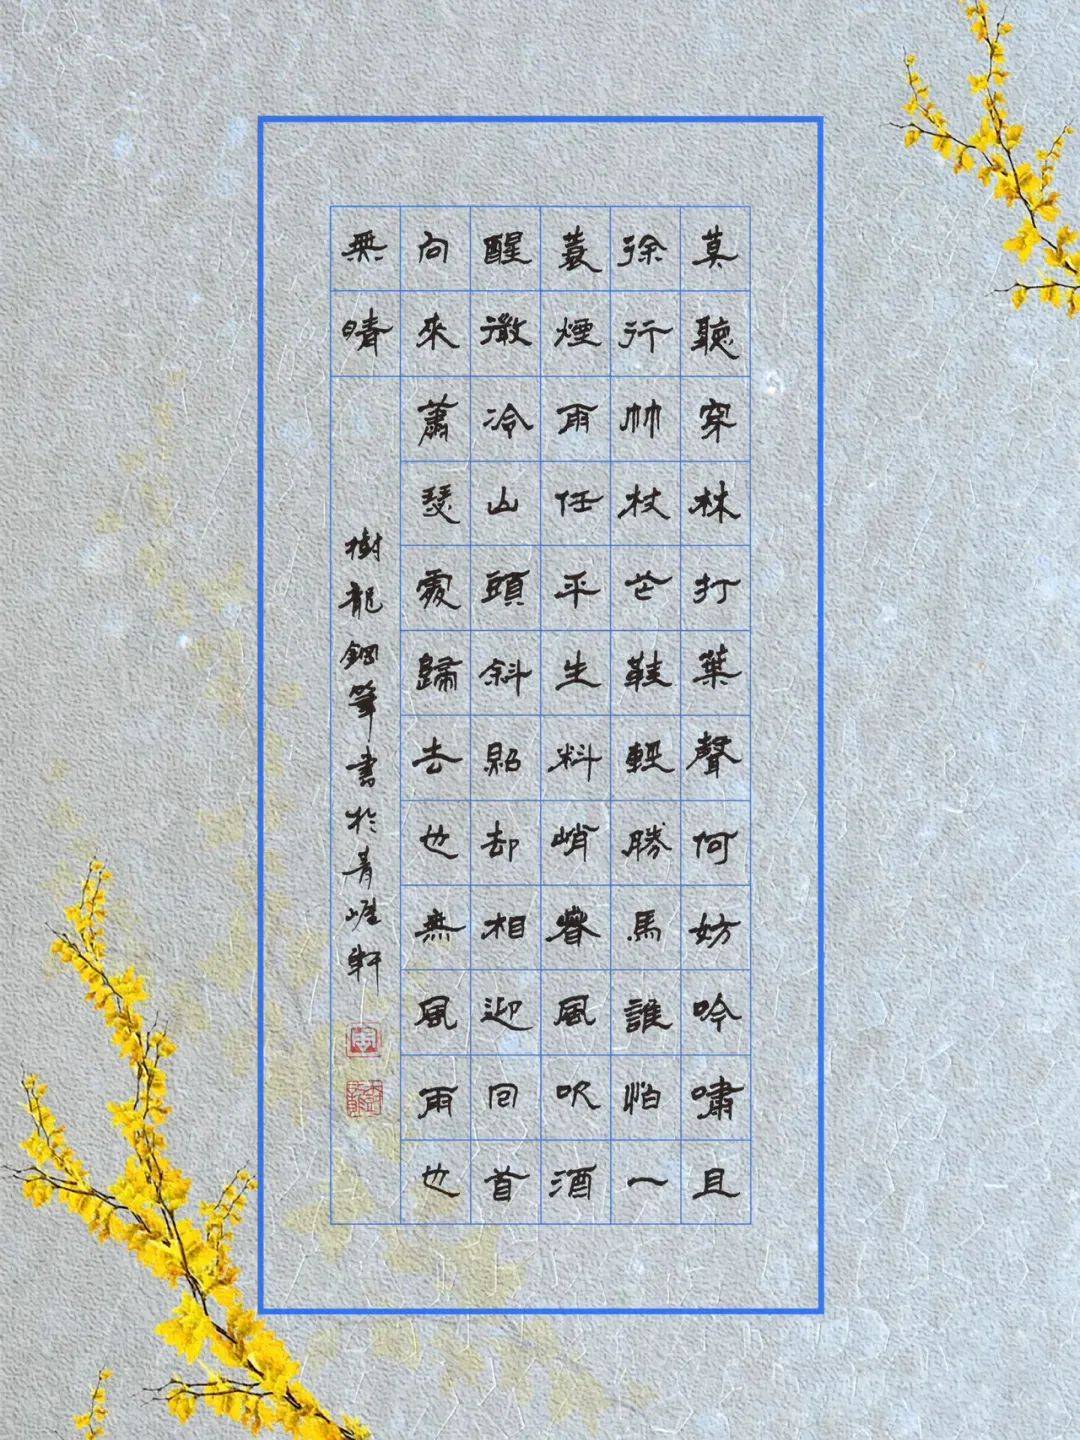 莫聽穿林打葉聲何妨吟嘯且
徐行竹杖芒鞋輕勝馬誰怕一
蓑煙雨任平生料峭春風吹酒
醒微冷山頭斜照却相迎回首
向來蕭瑟處歸去也無風雨也
無晴
樹龍鋼筆書於青崖軒